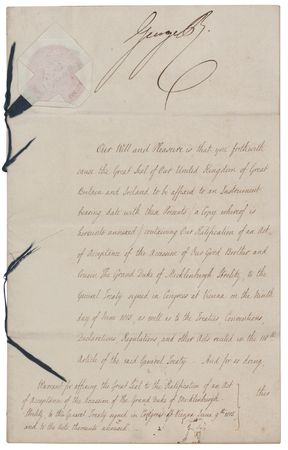 George R.
Our Will and Pleasure is that you forthwith
cause the Great Seal of Our United Kingdom of Great
Britain and Ireland to be affixed to an Instrument
bearing date with these Presents, a Copy whereof is
hereunto annexed, containing Our Ratification of an Act
of Acceptance of the Accession of Our Good Brother and
Cousin The Grand Duke of Mecklenburgh Strelitz, to the
General Treaty signed in Congress at Vienna on the Ninth
day of June 1815, as well as to the Treaties, Conventions
Declarations Regulations and other Acts recited in the 118th
Article of the said General Treaty. And for so doing
this
Warrant for affixing the Great Seal to the Ratification of an Act
of Acceptance of the Accession of the Grand Duke of Mecklenburgh
Strelitz, to the General Treaty signed in Congress at Vienna June 9th 1815
and to the Acts thereunto annexed.